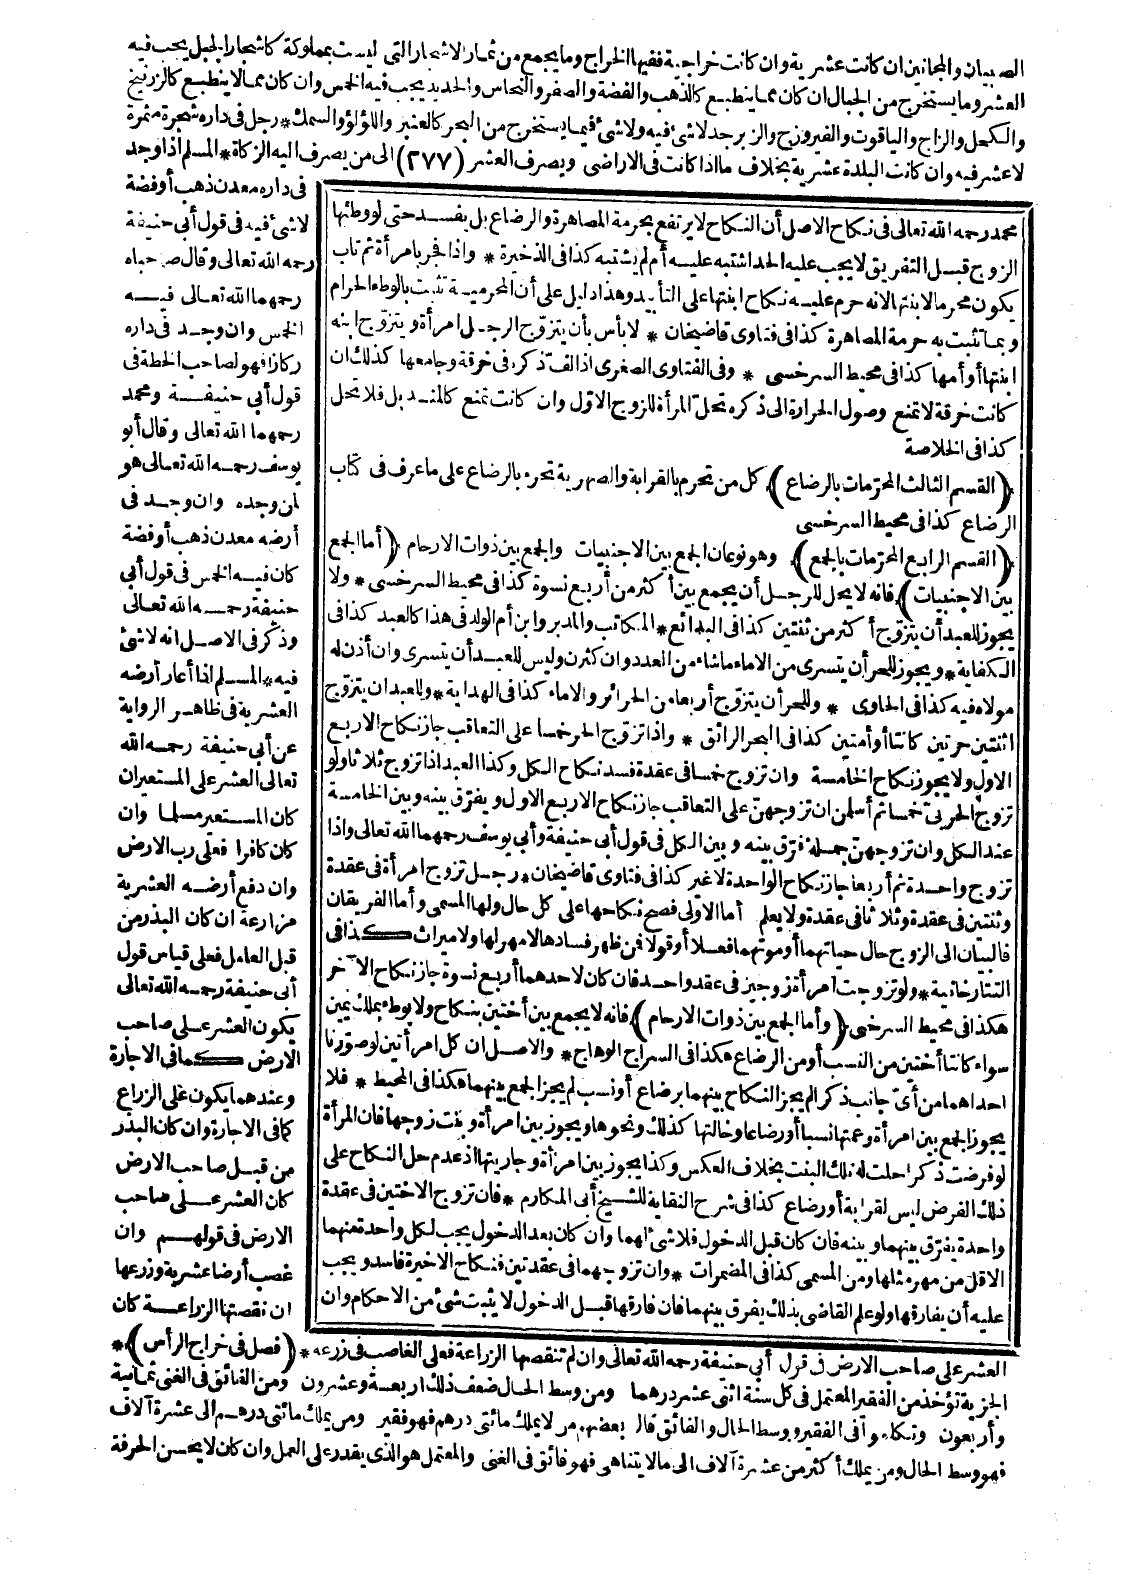 الصبيان والمجانين ان كانت عشرية وان كانت خراجية ففيها الخراج وما يجمع من ثمار الاشجار التي ليست بمملوكة كاشجار الجبل يجب فيه
العشر وما يستخرج من الجبال ان كان مما ينطبع كالذهب والفضة والصفر والنحاس والحديد يجب فيه الخمس وان كان مما لا ينطبع كالزرنيخ
والكحل والزاج والياقوت والفيروزج والزبرجد لاشئ فيه ولاشئ فيما يستخرج من البحر كالعنبر واللؤلؤ والسمك * رجل فى داره شجرة مثمرة
لا عشر فيه وان كانت البلدة عشرية بخلاف ما اذا كانت فى الاراضى ويصرف العشر (٢٧٧) الى من يصرف اليه الزكاة * المسلم اذا وجد
فى داره معدن ذهب أو فضة
لاشئ فيه فى قول أبى حنيفة
رحمه الله تعالى وقال صاحباه
رحمهما الله تعالى فيه
الخمس وان وجد فى داره
ركازا فهو لصاحب الخطة فى
قول أبى حنيفة ومحمد
رحمهما الله تعالى وقال أبو
يوسف رحمه الله تعالى هو
لمن وجده وان وجد فى
أرضه معدن ذهب أو فضة
كان فيه الخمس فى قول أبى
حنيفة رحمه الله تعالى
وذكر فى الاصل انه لاشئ
فيه * المسلم اذا أعار أرضه
العشرية فى ظاهر الرواية
عن أبى حنيفة رحمه الله
تعالى العشر على المستعير ان
كان المستعير مسلما وان
كان كافرا فعلى رب الارض
وان دفع أرضه العشرية
مزارعة ان كان البذر من
قبل العامل فعلى قياس قول
أبى حنيفة رحمه الله تعالى
يكون العشر على صاحب
الارض كما فى الاجارة
وعندهما يكون على الزراع
كما فى الاجارة وان كان البذر
من قبل صاحب الارض
كان العشر على صاحب
الارض فى قولهم وان
غصب أرضا عشرية وزرعها
ان نقصتها الزراعة كان
محمد رحمه الله تعالى فى نكاح الاصل أن النكاح لا يرتفع بحرمة المصاهرة والرضاع بل يفسد حتى لو وطئها
الزوج قبل التفريق لا يجب عليه الحد اشتبه عليه أم لم يشتبه كذا فى الذخيرة * واذا فجر بامرأة ثم تاب
يكون محرما لابنتها لانه حرم عليه نكاح ابنتها على التأبيد وهذا دليل على أن المحرمية تثبت بالوطء الحرام
وبما تثبت به حرمة المصاهرة كذا فى فتاوى قاضيخان * لا بأس بأن يتزوج الرجل امرأة ويتزوج ابنه
ابنتها أو أمها كذا فى محيط السرخسى * وفى الفتاوى الصغرى اذا لف ذكره فى خرقة وجامعها كذلك ان
كانت خرقة لا تمنع وصول الحرارة الى ذكره تحل المرأة للزوج الاول وان كانت تمنع كالمنديل فلا تحل
كذا فى الخلاصة
﴿القسم الثالث المحرمات بالرضاع﴾ كل من تحرم بالقرابة والصهرية تحرم بالرضاع على ما عرف فى كتاب
الرضاع كذا فى محيط السرخسى
﴿القسم الرابع المحرمات بالجمع﴾ وهو نوعان الجمع بين الاجنبيات والجمع بين ذوات الارحام ﴿أما الجمع
بين الاجنبيات﴾ فانه لا يحل للرجل أن يجمع بين أكثر من أربع نسوة كذا فى محيط السرخسى * ولا
يجوز للعبد أن يتزوج أكثر من ثنتين كذا فى البدائع * المكاتب والمدبر وابن أم الولد فى هذا كالعبد كذا فى
الكفاية * ويجوز للحر أن يتسرى من الاماء ماشاء من العدد وان كثرن وليس للعبد أن يتسرى وان أذن له
مولاه فيه كذا فى الحاوى * وللحر أن يتزوج أربعا من الحرائر والاماء كذا فى الهداية * وللعبد ان يتزوج
اثنتين حرتين كانتا أو أمتين كذا فى البحر الرائق * واذا تزوج الحر خمسا على التعاقب جاز نكاح الاربع
الاول ولا يجوز نكاح الخامسة وان تزوج خمسا فى عقدة فسد نكاح الكل وكذا العبد اذا تزوج ثلاثا ولو
تزوج الحربى خمسا ثم أسلمن ان تزوجهن على التعاقب جاز نكاح الاربع الاول ويفرق بينه وبين الخامسة
عند الكل وان تزوجهن جملة فرق بينه وبين الكل فى قول أبى حنيفة وأبى يوسف رحمهما الله تعالى واذا
تزوج واحدة ثم أربعا جاز نكاح الواحدة لا غير كذا فى فتاوى قاضيخان * رجل تزوج امرأة فى عقدة
وثنتين فى عقدة وثلاثا فى عقدة ولا يعلم أما الاولى فصح نكاحها على كل حال ولها المسمى وأما الفريقان
فالبيان الى الزوج حال حياتهما أو موتهما فعلا أو قولا فمن ظهر فسادها لا مهر لها ولا ميراث كذا فى
التتارخانية * ولو تزوجت امرأة زوجين فى عقد واحد فان كان لاحدهما أربع نسوة جاز نكاح الآخر
هكذا فى محيط السرخسى ﴿وأما الجمع بين ذوات الارحام﴾ فانه لا يجمع بين أختين بنكاح ولا بوطء بملك يمين
سواء كانتا أختين من النسب أو من الرضاع هكذا فى السراج الوهاج * والاصل ان كل امرأتين لو صورنا
احداهما من أى جانب ذكرا لم يجز النكاح بينهما برضاع أو نسب لم يجز الجمع بينهما هكذا فى المحيط * فلا
يجوز الجمع بين امرأة وعمتها نسبا أو رضاعا وخالتها كذلك ونحوها ويجوز بين امرأة وبنت زوجها فان المرأة
لو فرضت ذكرا حلت له تلك البنت بخلاف العكس وكذا يجوز بين امرأة وجاريتها اذ عدم حل النكاح على
ذلك الفرض ليس لقرابة أو رضاع كذا فى شرح النقاية للشيخ أبى المكارم * فان تزوج الاختين فى عقدة
واحدة يفرق بينهما وبينه فان كان قبل الدخول فلا شئ لهما وان كان بعد الدخول يجب لكل واحدة منهما
الاقل من مهر مثلها ومن المسمى كذا فى المضمرات * وان تزوجهما فى عقدتين فنكاح الاخيرة فاسد ويجب
عليه أن يفارقها ولو علم القاضى بذلك يفرق بينهما فان فارقها قبل الدخول لا يثبت شئ من الاحكام وان
العشر على صاحب الارض فى قول أبى حنيفة رحمه الله تعالى وان لم تنقصها الزراعة فعلى الغاصب فى زرعه * ﴿فصل فى خراج الرأس﴾ *
الجزية تؤخذ من الفقير المعتمل فى كل سنة اثنى عشر درهما ومن وسط الحال ضعف ذلك اربعة وعشرون ومن الفائق فى الغنى ثمانية
وأربعون وتكلموا فى الفقير ووسط الحال والفائق قال بعضهم من لا يملك مائتى درهم فهو فقير ومن يملك مائتى درهم الى عشرة آلاف
فهو وسط الحال ومن يملك أكثر من عشرة آلاف الى مالا يتناهى فهو فائق فى الغنى والمعتمل هو الذى يقدر على العمل وان كان لا يحسن الحرفة